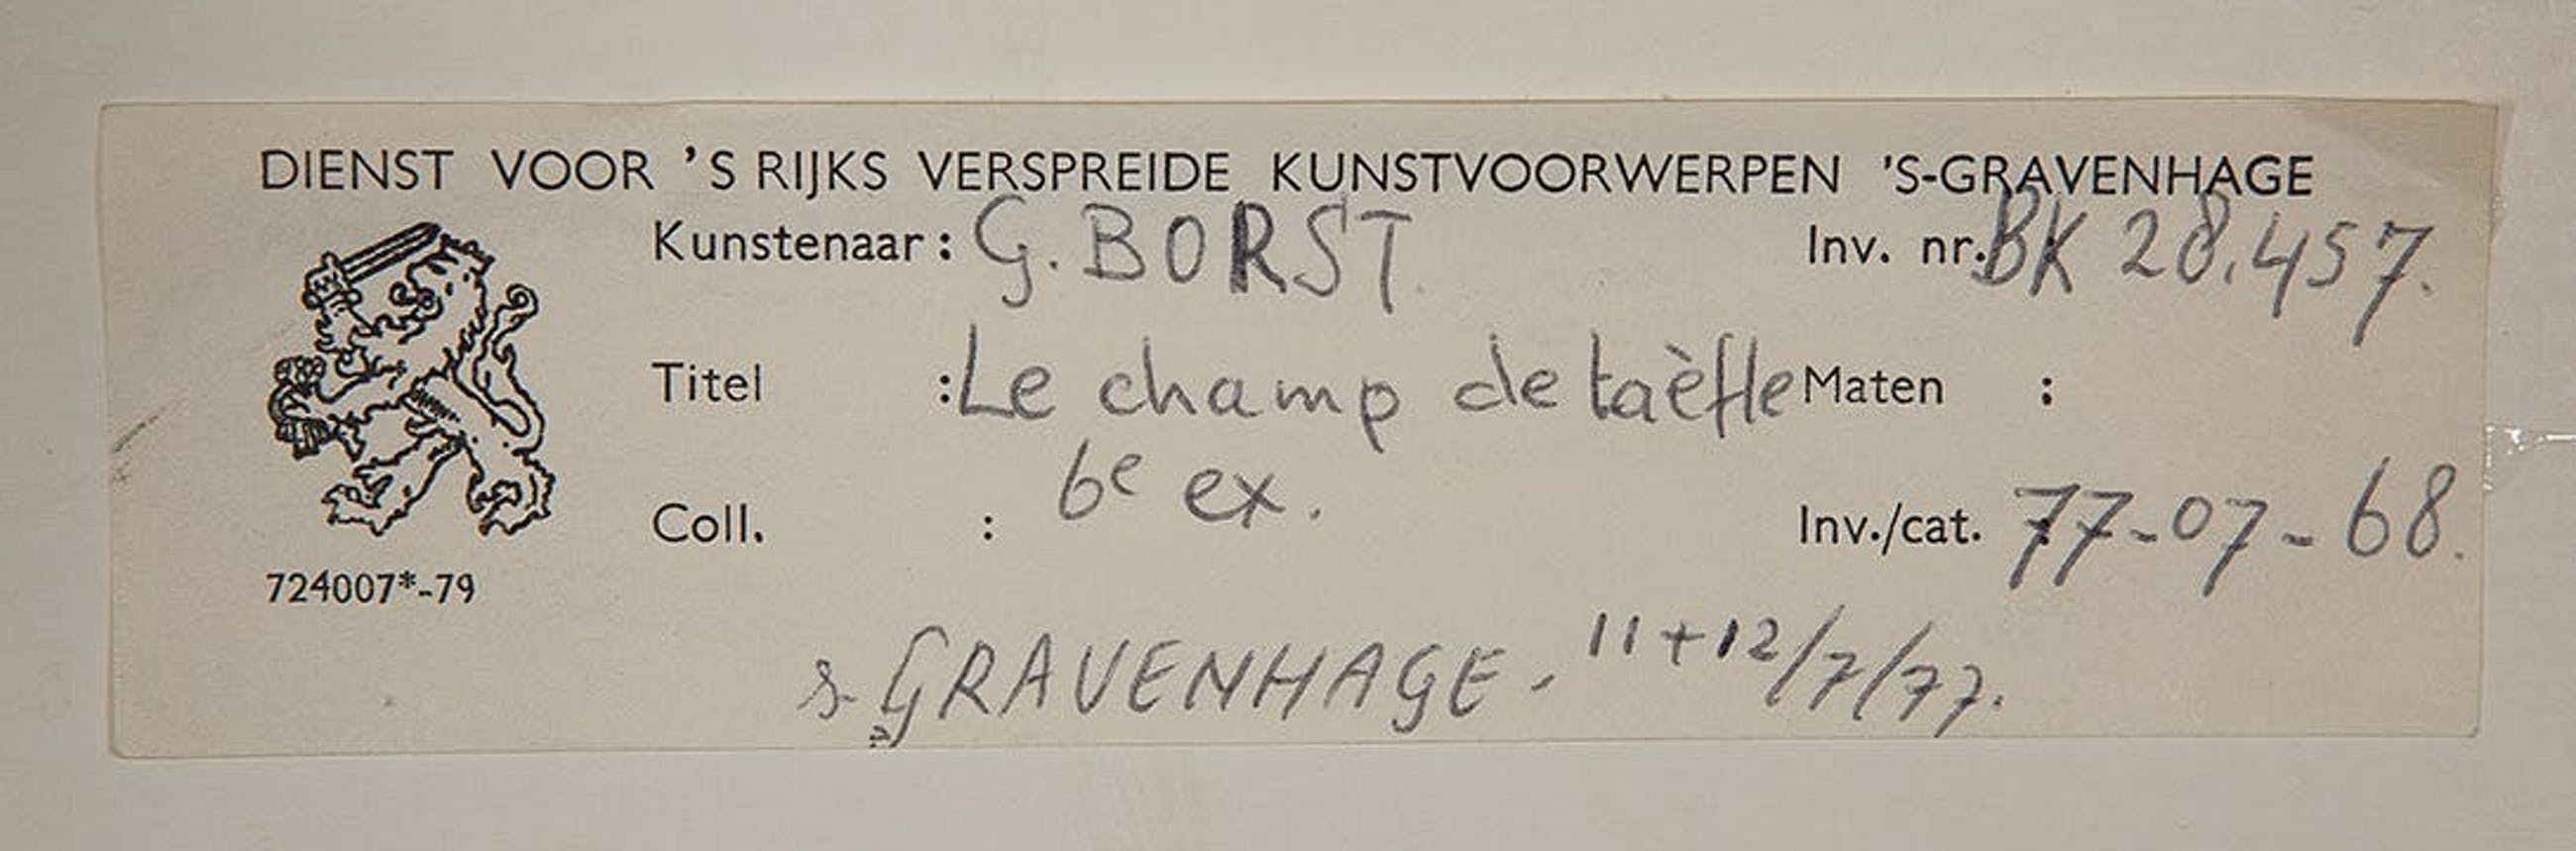 DIENST VOOR 'S RIJKS VERSPREIDE KUNSTVOORWERPEN 'S-GRAVENHAGE
Kunstenaar : G. BORST. Inv. nr. BK 28.457.
Titel : Le champ de taèfle Maten :
6e ex.
Coll. : Inv./cat. : 77-07-68.
724007*-79
s-GRAVENHAGE - 11+12/7/77.